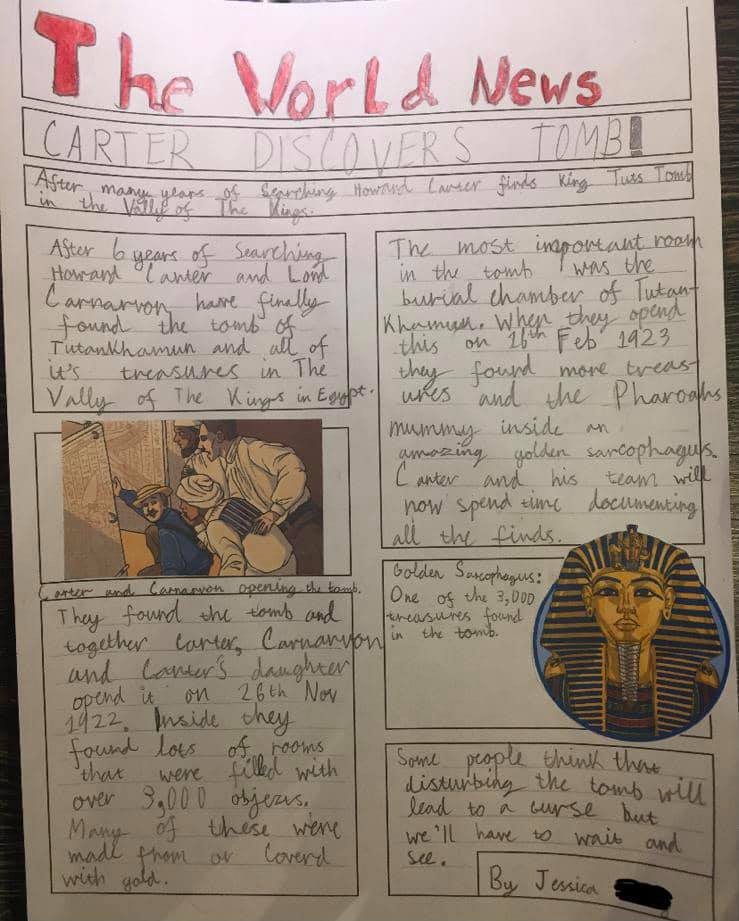 The World News
CARTER DISCOVERS TOMB!
After many years of Searching Howard Carter finds King Tuts Tomb
in the Vally of The Kings.
After 6 years of Searching
Howard Canter and Lord
Carnarvon have finally
found the tomb of
TutanKhamun and all of
it's treasures in The
Vally of The Kings in Egypt.
Carter and Carnarvon opening the tomb.
They found the tomb and
together Carter, Carnarvon
and Canter's daughter
opend it on 26th Nov
1922. Inside they
found lots of rooms
that were filled with
over 3,000 objects.
Many of these were
made from or Coverd
with gold.
The most important room
in the tomb was the
burial chamber of Tutan-
Khamun. When they opend
this on 16th Feb 1923
they found more treas-
ures and the Pharoahs
mummy inside an
amazing golden sarcophagus.
Canter and his team will
now spend time documenting
all the finds.
Golden Sarcophagus:
One of the 3,000
treasures found
in the tomb.
Some people think that
disturbing the tomb will
lead to a curse but
we'll have to wait and
see.
By Jessica